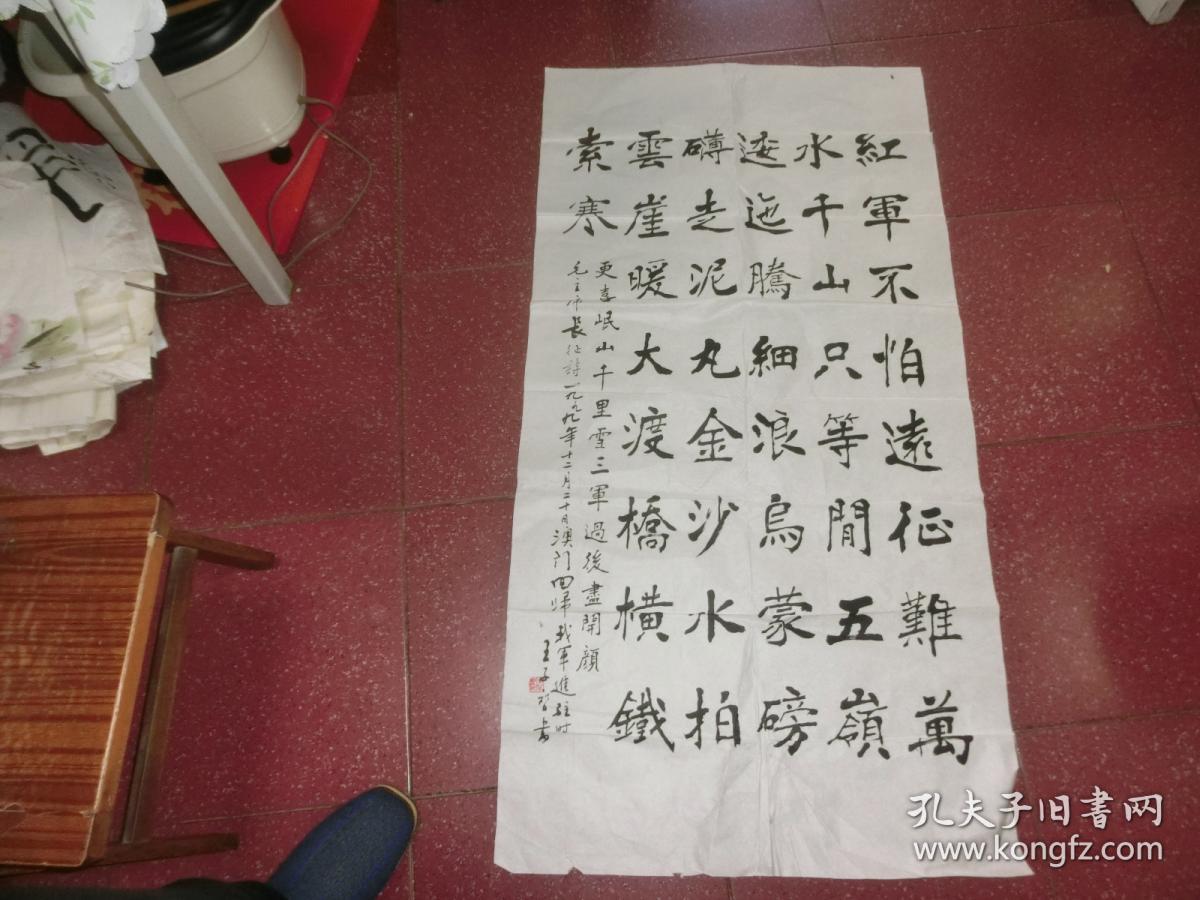 紅軍不怕遠征難萬
水千山只等閒五嶺
逶迤騰細浪烏蒙磅
礴走泥丸金沙水拍
雲崖暖大渡橋橫鐵
索寒
更喜岷山千里雪三軍過後盡開顏
毛主席長征詩一九九九年十二月二十日澳门回歸我軍進駐时
王子 书
孔夫子旧書网
www.kongfz.com